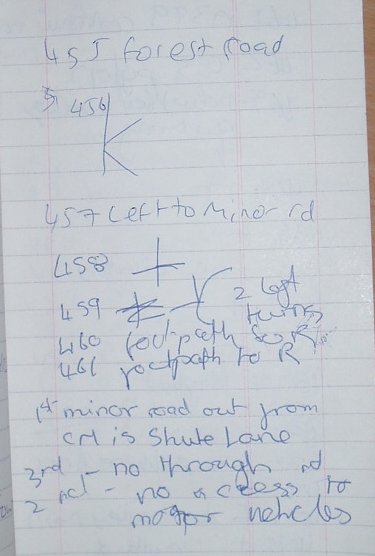 455 forest road
456
457 Left to Minor rd
458
459 2 left
turns
460 footpath to R
461 footpath to R
1st minor road out from
CH is Shute Lane
3rd - no through rd
2nd - no access to
motor vehicles